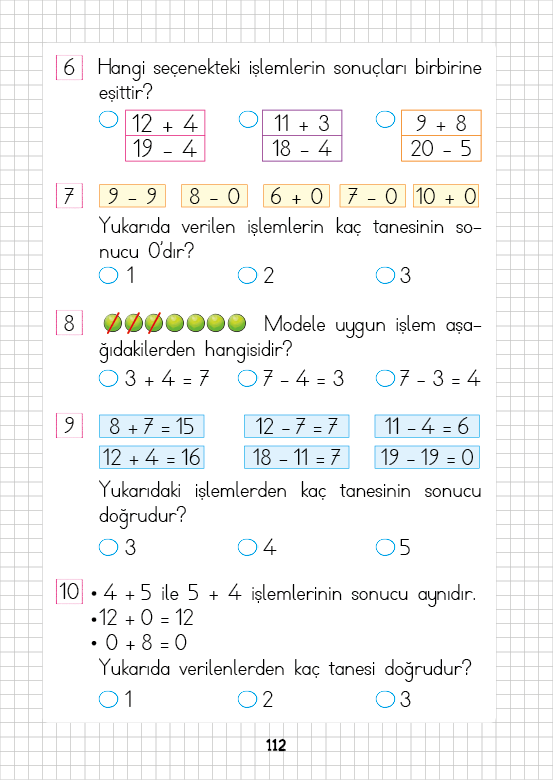 6 Hangi seçenekteki işlemlerin sonuçları birbirine
eşittir?
12 + 4 11 + 3 9 + 8
19 - 4 18 - 4 20 - 5
7 9 - 9 8 - 0 6 + 0 7 - 0 10 + 0
Yukarıda verilen işlemlerin kaç tanesinin so-
nucu 0'dır?
1 2 3
8 Modele uygun işlem aşa-
ğıdakilerden hangisidir?
3 + 4 = 7 7 - 4 = 3 7 - 3 = 4
9 8 + 7 = 15 12 - 7 = 7 11 - 4 = 6
12 + 4 = 16 18 - 11 = 7 19 - 19 = 0
Yukarıdaki işlemlerden kaç tanesinin sonucu
doğrudur?
3 4 5
10 • 4 + 5 ile 5 + 4 işlemlerinin sonucu aynıdır.
•12 + 0 = 12
• 0 + 8 = 0
Yukarıda verilenlerden kaç tanesi doğrudur?
1 2 3
112